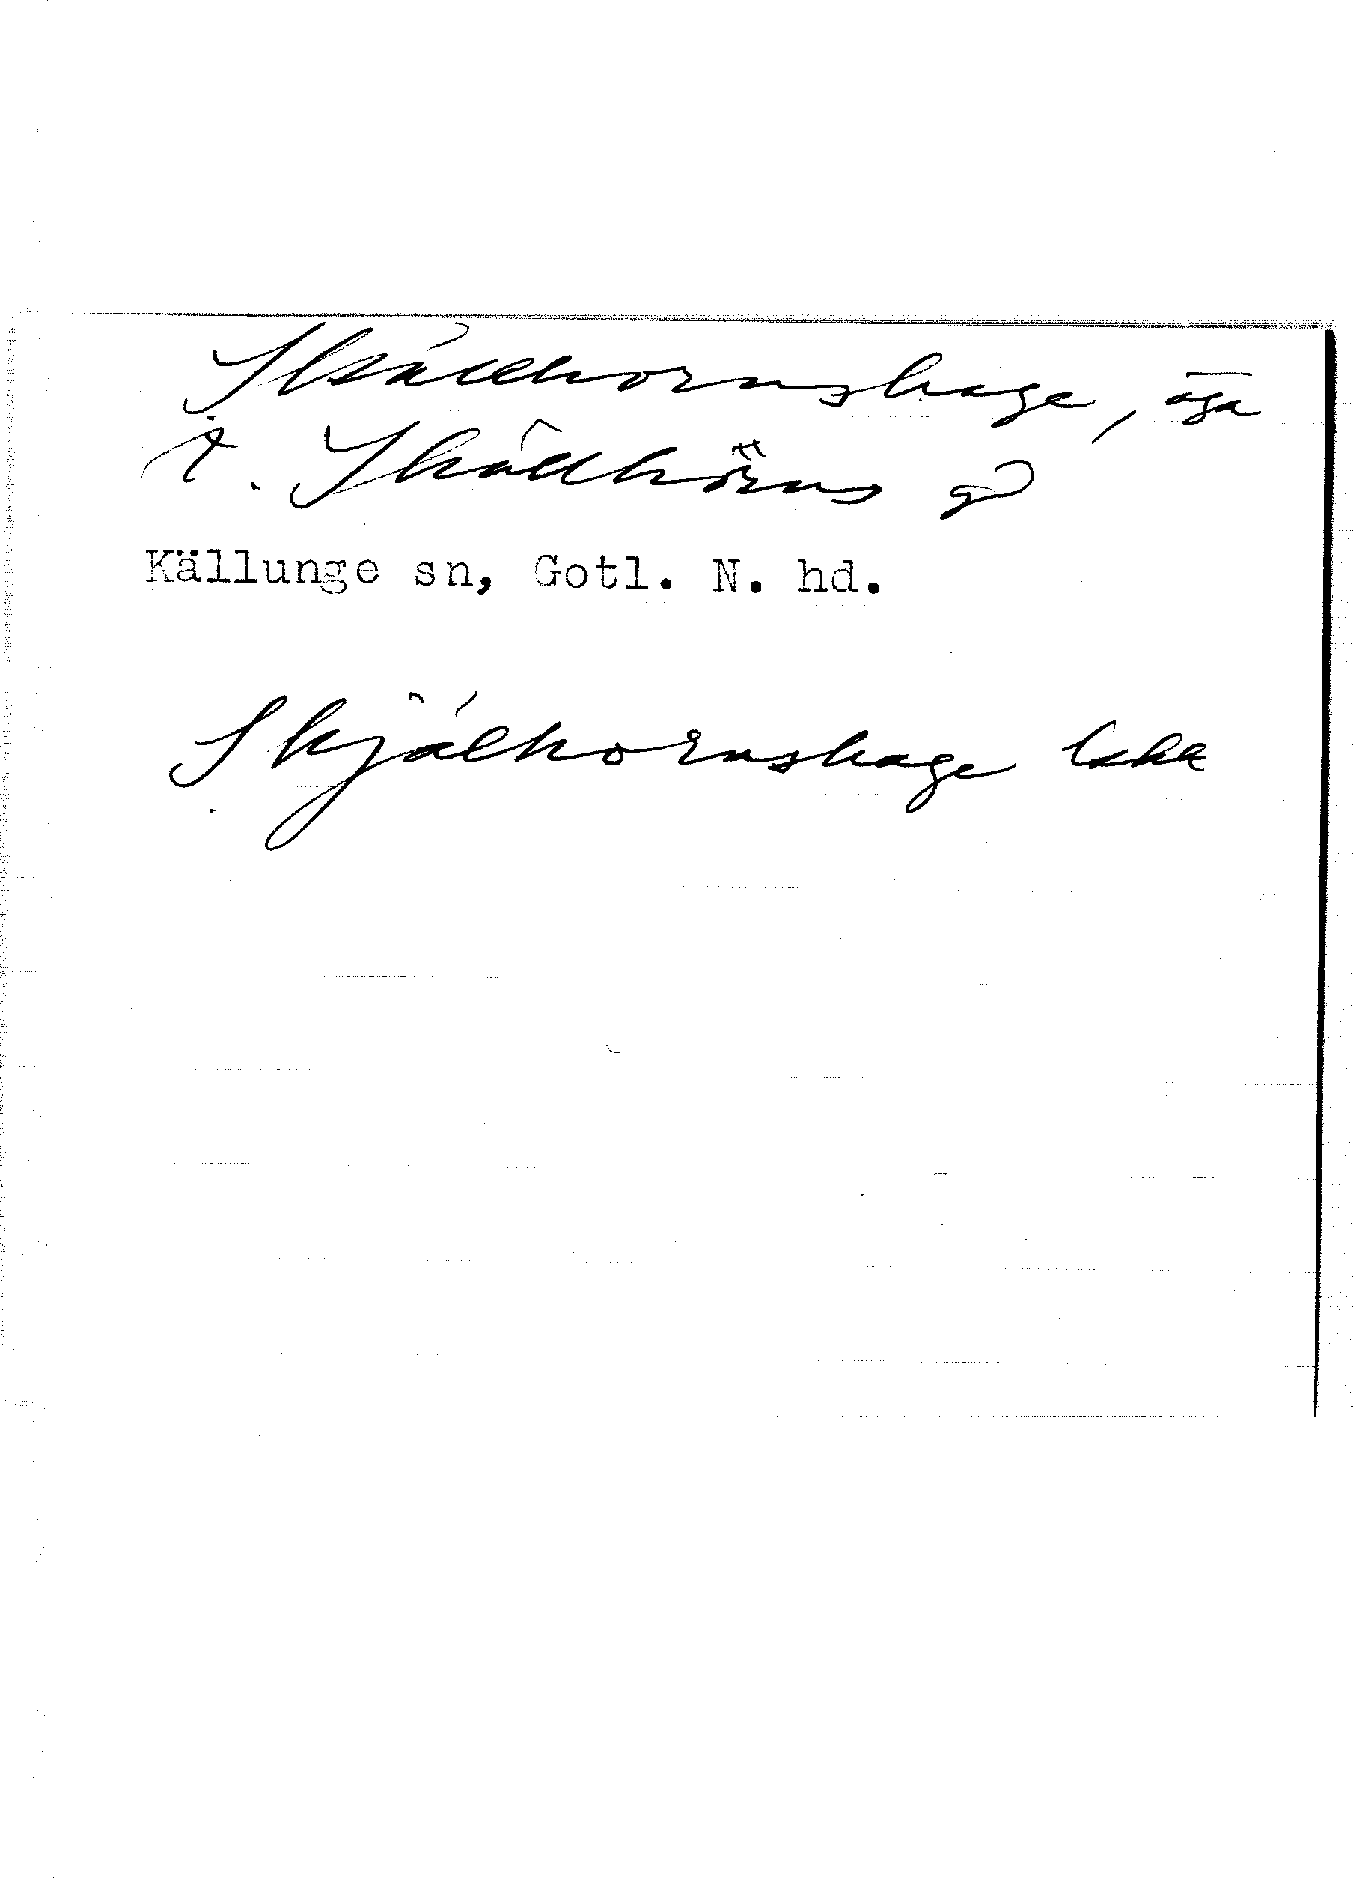 Skäldhornshage, äga
t. Skäldhörns gd
Källunge sn, Gotl. N. hd.
Skjälhornshage lskk